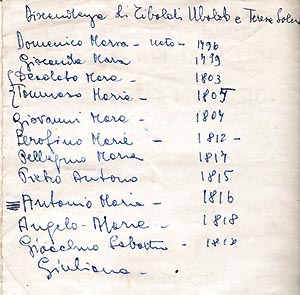 Discendenza di Tiboldi Ubaldo e Teresa
Domenico Maria - nato - 1796
Giocondo Mara 1799
Deodato Mara - 1803
Tommaso Maria - 1805
Giovanni Mara - 1807
Serafino Maria - 1812 -
Pellegrino Maria 1817
Pietro Antonio 1815
Antonio Maria - 1816
Angelo - Maria - 1818
Gioacchino 1818
Giuliana -